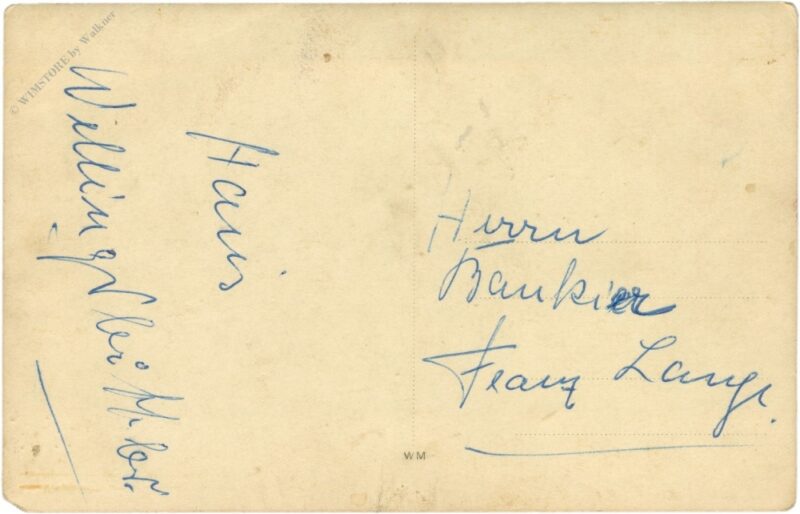 © WIMSTORE by Walkner
Hans
Herrn
Bankier
Franz Lange.
WM